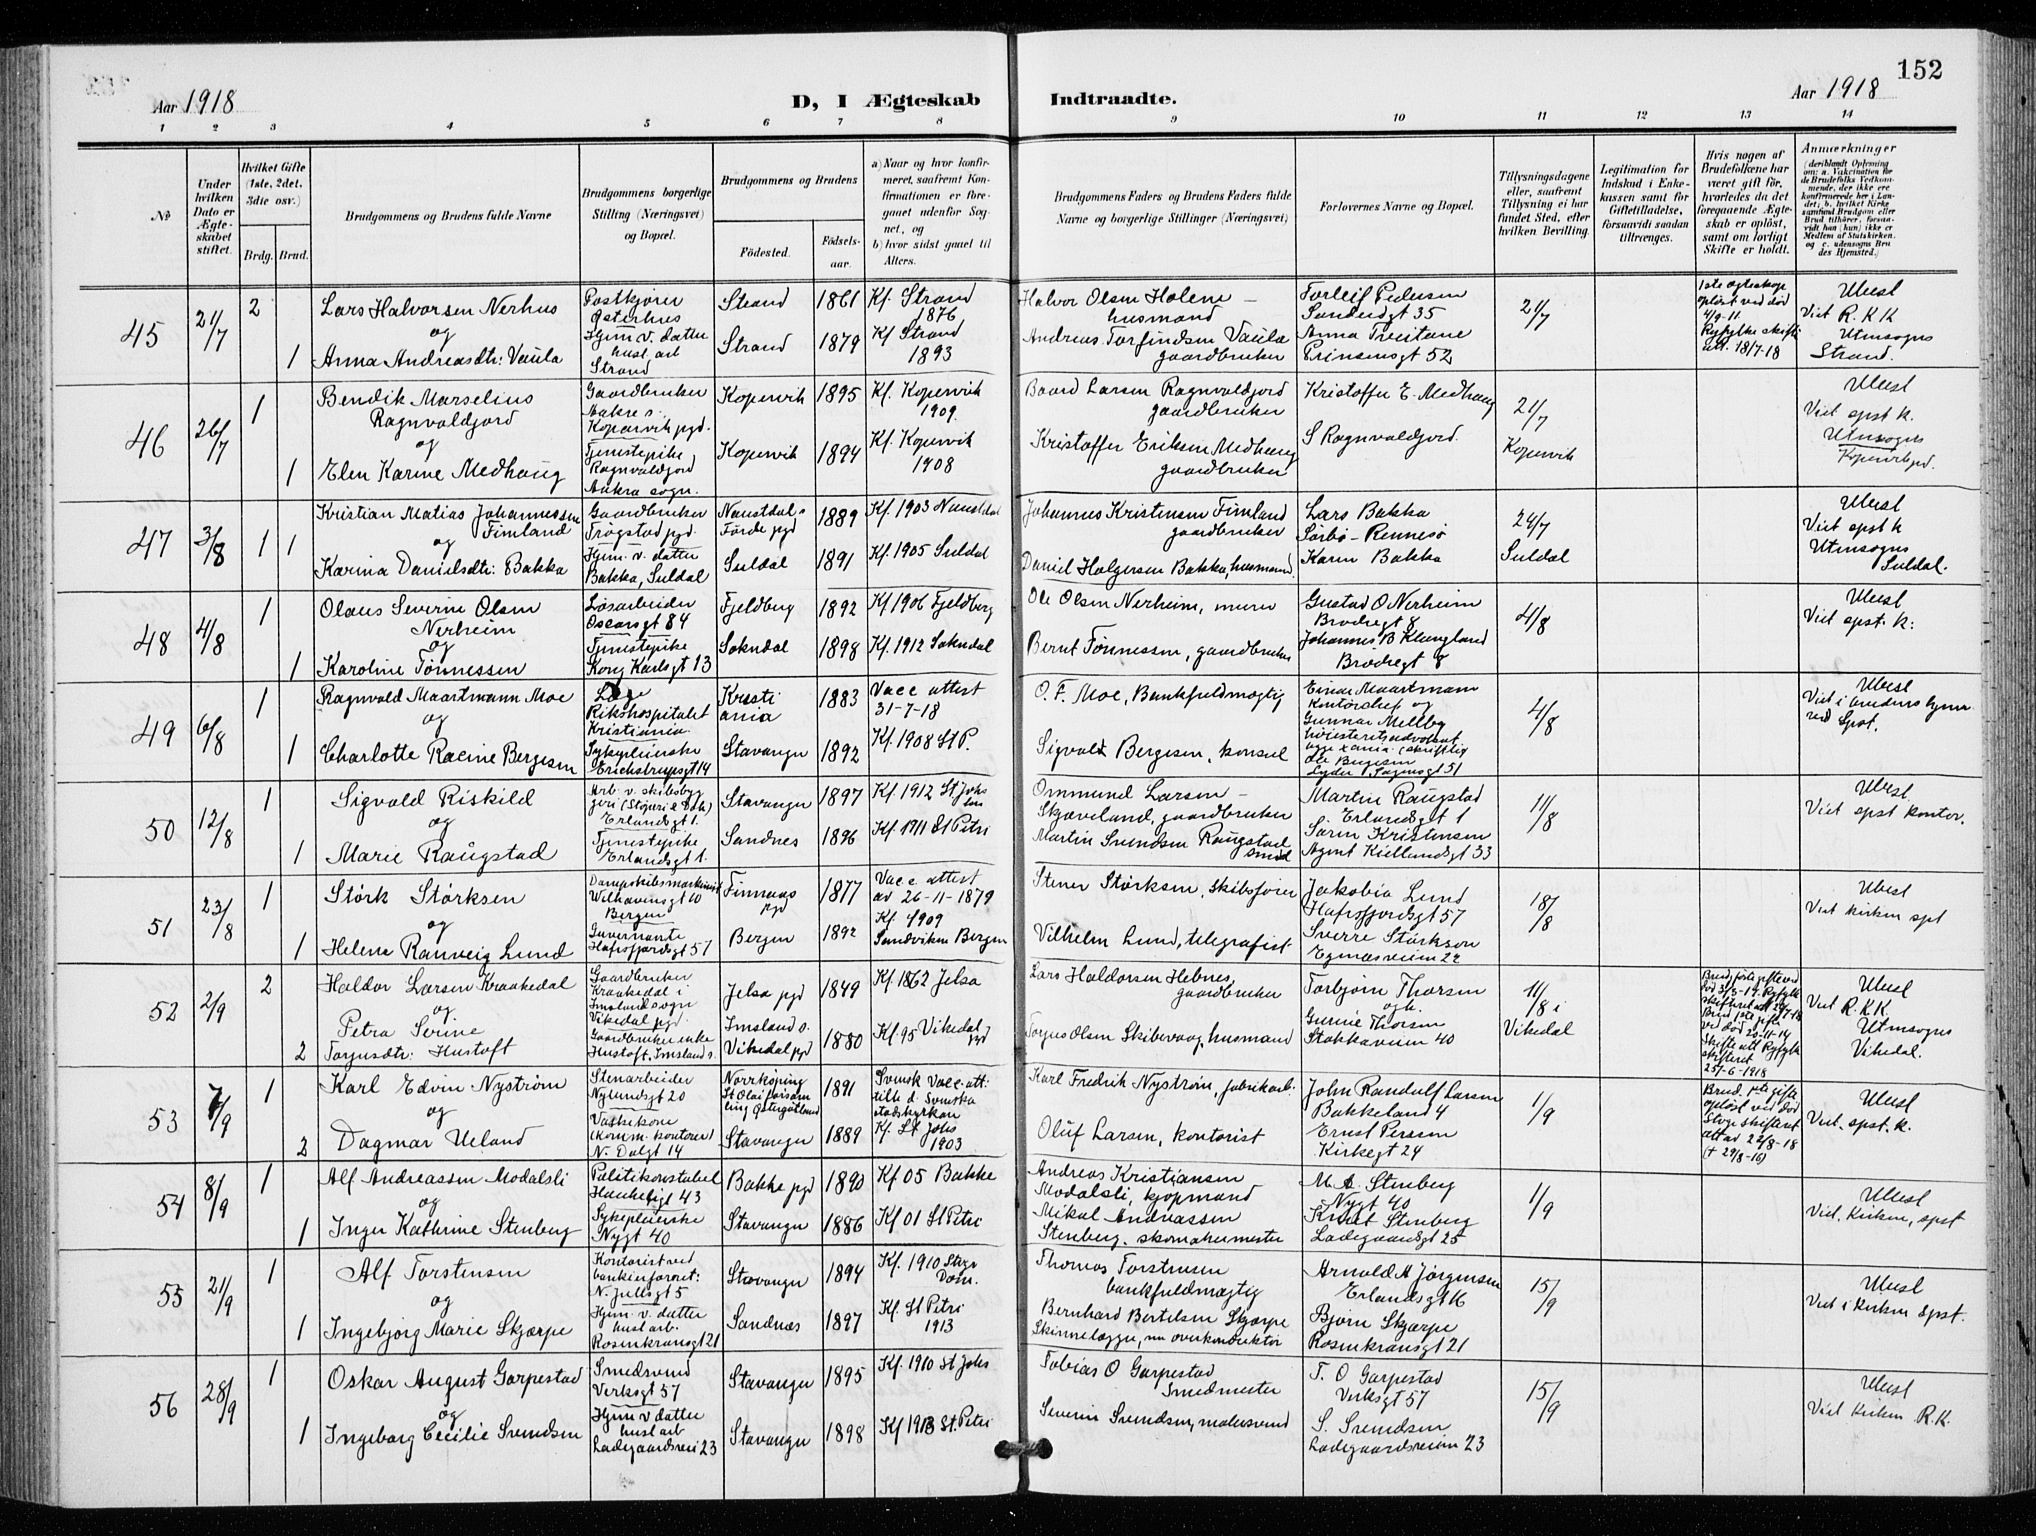 152
Aar 1918
D, I Ægteskab Indtraadte.
Aar 1918
1 2 3 4 5 6 7 8 9 10 11 12 13 14
No
Under hvilken Dato er Ægteskabet stiftet.
Hvilket Gifte (1ste, 2det, 3die osv.)
Brdg. Brud.
Brudgommens og Brudens fulde Navne
Brudgommens borgerlige Stilling (Næringsvei) og Bopæl.
Brudgommens og Brudens
Fødested.
Fødselsaar.
a) Naar og hvor konfirmeret, saafremt Konfirmationen er foregaaet udenfor Sognet, og
b) hvor sidst gaaet til Alters.
Brudgommens Faders og Brudens Faders fulde Navne og borgerlige Stillinger (Næringsvei)
Forlovernes Navne og Bopæl.
Tillysningsdagene eller, saafremt Tillysning ei har fundet Sted, efter hvilken Bevilling.
Legitimation for Indskud i Enkekassen samt for Giftetilladelse, forsaavidt saadan tiltrænges.
Hvis nogen af Brudefolkene har været gift før, hvorledes da det foregaaende Ægteskab er opløst, samt om lovligt Skifte er holdt.
Anmerkninger
45 21/7 2 Lars Halvorsen Nerhus
og
1 Anna Andreasdtr: Vaula
Postkjører
Østerhus
Hjem. v. datter
husl. arb
Strand
Strand 1861 Kf. Strand 1876
Strand 1879 Kf Strand 1893
Halvor Olsen Holene - husmand
Andreas Torfindsen Vaula gaardbruker
Torleif Pedersen
Sandeidgt 35
Anna Tveitane
Prinsensgt 52
21/7
1ste egteskap
opløst ved død
4/9-11.
Ryfylke skifte
att. 18/7-18
Ubesl
Viet R.K.K
Utensogns
Strand.
46 26/7 1 Bendik Marselius
Ragnvaldjord
og
1 Elen Karine Medhaug
Gaardbruker
Aakre s.
Kopervik pgd.
Tjenestepike
Ragnvaldjord
Aakra sogn.
Kopervik 1895 Kf. Kopervik 1909.
Kopervik 1894 Kf. Kopervik 1908
Baard Larsen Ragnvaldjord
gaardbruker
Kristoffer Eriksen Medhaug
gaardbruker
Kristoffer E. Medhaug
S Ragnvaldjord.
21/7
Kopervik
Ubesl
Viet spst k.
Utensogns
Kopervik pgd.
47 3/8 1 1 Kristian Matias Johannessen
Fimland
og
Karina Danielsdtr: Bakka
Gaardbruker
Trøgstad pgd.
Hjem. v. datter
Bakka, Suldal
Naustdal s
Førde pgd 1889 Kf. 1903 Naustdal
Suldal 1891 Kf. 1905 Suldal
Johannes Kristensen Fimland
gaardbruker
Daniel Halgersen Bakka, husmand.
Lars Bakka
Sørbø - Rennesø
Karen Bakka
24/7
Suldal
Ubesl
Viet spst k
Utensogns
Suldal.
48 4/8 1 Olaus Severin Olsen
Nerheim
og
1 Karoline Tønnessen
Løsarbeider
Oscarsgt 84
Tjenestepike
Kong Karlsgt 13
Fjeldberg 1892 Kf 1906 Fjeldberg
Sokndal 1898 Kf. 1912 Sokndal
Ole Olsen Nerheim, murer
Bernt Tønnessen, gaardbruker
Gustav O Nerheim
Brodregt 8
Johannes B Klungland
Brodregt 8
4/8
Ubesl
Viet spst. k:
49 6/8 1 Ragnvald Maartmann Moe
og
1 Charlotte Racine Bergesen
Læge
Rikshospitalet
Kristiania.
Sykepleierske
Erichstrupsgt 14
Kristiania 1883 Vacc attest 31-7-18
Stavanger 1892 Kf. 1908 St P.
O. F. Moe, Bankfuldmægtig
Sigvald Bergesen, konsul
Einar Maartmann
Kontorchef og
Gunnar Mellby
høiesteretsadvokat
4/8
Ubesl
Viet i brudens hjem
ved Spst.
50 12/8 1 Sigvald Riskild
og
1 Marie Raugstad
Arb v. skibsbyggeri
Erlandsgt 1.
Tjenestepike
Erlandsgt 1.
Stavanger 1897 Kf 1912 St Johs
Sandnes 1896 Kf. 1911 St Petri
Ommund Larsen -
Skjæveland, gaardbruker
Martin Svendsen Raugstad
smed
Martin Raugstad
Erlandsgt 1
Søren Kristensen
Agent Kiellandsgt 33
11/8
Ubesl
Viet spst kontor.
51 23/8 1 Størk Størksen
og
1 Helene Ranveig Lund
Dampskibsmaskinist
Wilhavensgt 10
Bergen
Guvernante
Hafrsfjordsgt 57
Finnaas pgd 1877 Vacc. attest av 26-11-1879
Bergen 1892 Kf 1909 Sandviken Bergen
Stener Størksen, Skibsfører
Vilhelm Lund, telegrafist
Jakobia Lund
Hafrsfjordsgt 57
Sverre Størksen
Eganesveien 22
18/8
Ubesl
Viet kirken spst
52 2/9 2 Haldor Larsen Kraakedal
og
Petra Serine
2 Torgusdtr: Hustoft
Gaardbruker
Kraakedal i
Imsland sogn
Vikedal pgd.
Gaardbruker enke
Hustoft, Imsland s.
Jelsa pgd 1849 Kf. 1862 Jelsa
Imsland s.
Vikedal pgd 1880 Kf 95 Vikedal pgd
Lars Haldorsen Hebnes,
gaardbruker
Torgus Olsen Skibevaag, husmand
Torbjørn Thorsen
og
Gurine Thorsen
Stokkaveien 40
11/8 i
Vikedal
Ubesl
Viet R.K.K.
Utensogns
Vikedal.
53 7/9 1 Karl Edvin Nystrøm
og
2 Dagmar Ueland
Stenarbeider
Nylundsgt 20
Vaskekone
(Komm. kontorer)
N. Dalgt 14
Norrköping
St Olai församling Östergötland 1891 Svensk Vacc. att:
Stavanger 1889 Kf. St Johs 1903
Karl Fredrik Nystrøm, fabrikarb.
Oluf Larsen, kontorist
John Randulf Larsen
Bakkeland 4
Ernst Persson
Kirkegt 24
1/9
Brud. 1ste gifte
opløst ved død
Stvgr skifteret
att av 22/8-18
(+ 29/8-16)
Ubesl
Viet. spst. k.
54 8/9 1 Alf Andreassen Modalsli
og
1 Inger Kathrine Stenberg
Politikonstabel
Haukeligt 43
Sykepleierske
Nygt 40
Bakke pgd 1890 Kf 05 Bakke
Stavanger 1886 Kf 01 St Petri
Andreas Kristiansen
Modalsli, kjøpmand
Mikal Andreassen
Stenberg, skomakermester
M. A. Stenberg
Nygt 40
Knut Stenberg
Ladegaardsgt 25
1/9
Ubesl
Viet. Kirken, spst
55 21/9 1 Alf Torstensen
og
1 Ingebjørg Marie Skjærpe
Kontorist ved
bankinspektøret:
N. Jellsgt 5
Hjem. v. datter
husl arb.
Rosenkransgt 21
Stavanger 1894 Kf. 1910 Stvgr Dom.
Sandnæs 1897 Kf. St Petri 1913
Thomas Torstensen
bankfuldmægtig
Bernhard Bertelsen Skjærpe
Skinnelægger, nu overkonduktør
Arnold A Jørgensen
Erlandsgt 16
Bjørn Skjærpe
Rosenkransgt 21
15/9
Ubesl
Viet i kirken spst.
56 28/9 1 Oskar August Garpestad
og
1 Ingeborg Cecilie Svendsen
Smedsvend
Verksgt 57
Hjem v datter
husl arb
Ladegaardsvei 23
Stavanger 1895 Kf. 1910 St Johs
Stavanger 1898 Kf 1913 St. Petri
Tobias O Garpestad
Smedmester
Severin Svendsen, malersvend
T. O Garpestad
Verksgt 57
S. Svendsen
Ladegaardsveien 23
15/9
Ubesl
Viet Kirken R.K.